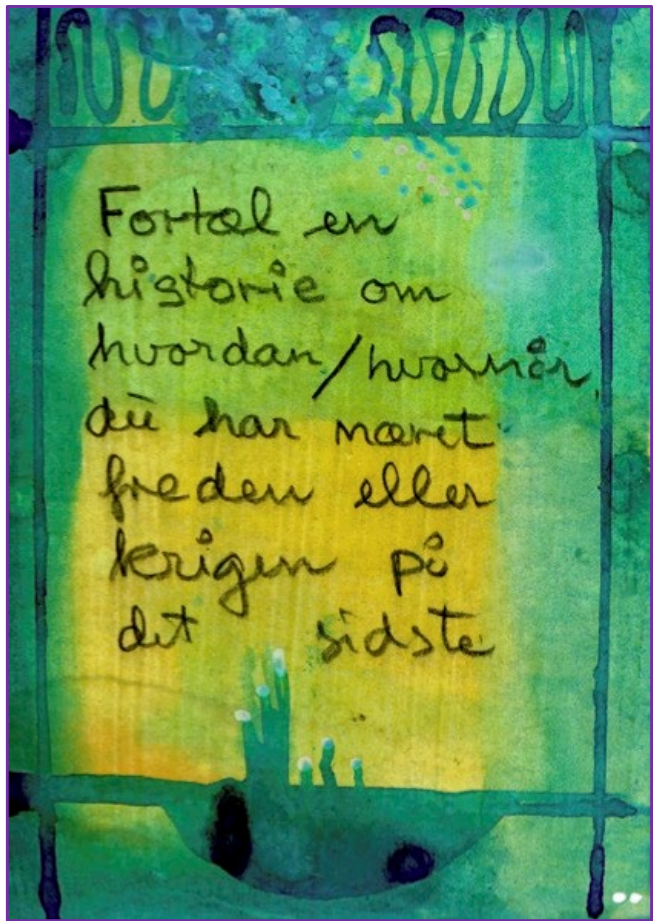 Fortæl en
historie om
hvordan/hvornår
du har næret
freden eller
krigen på
det sidste